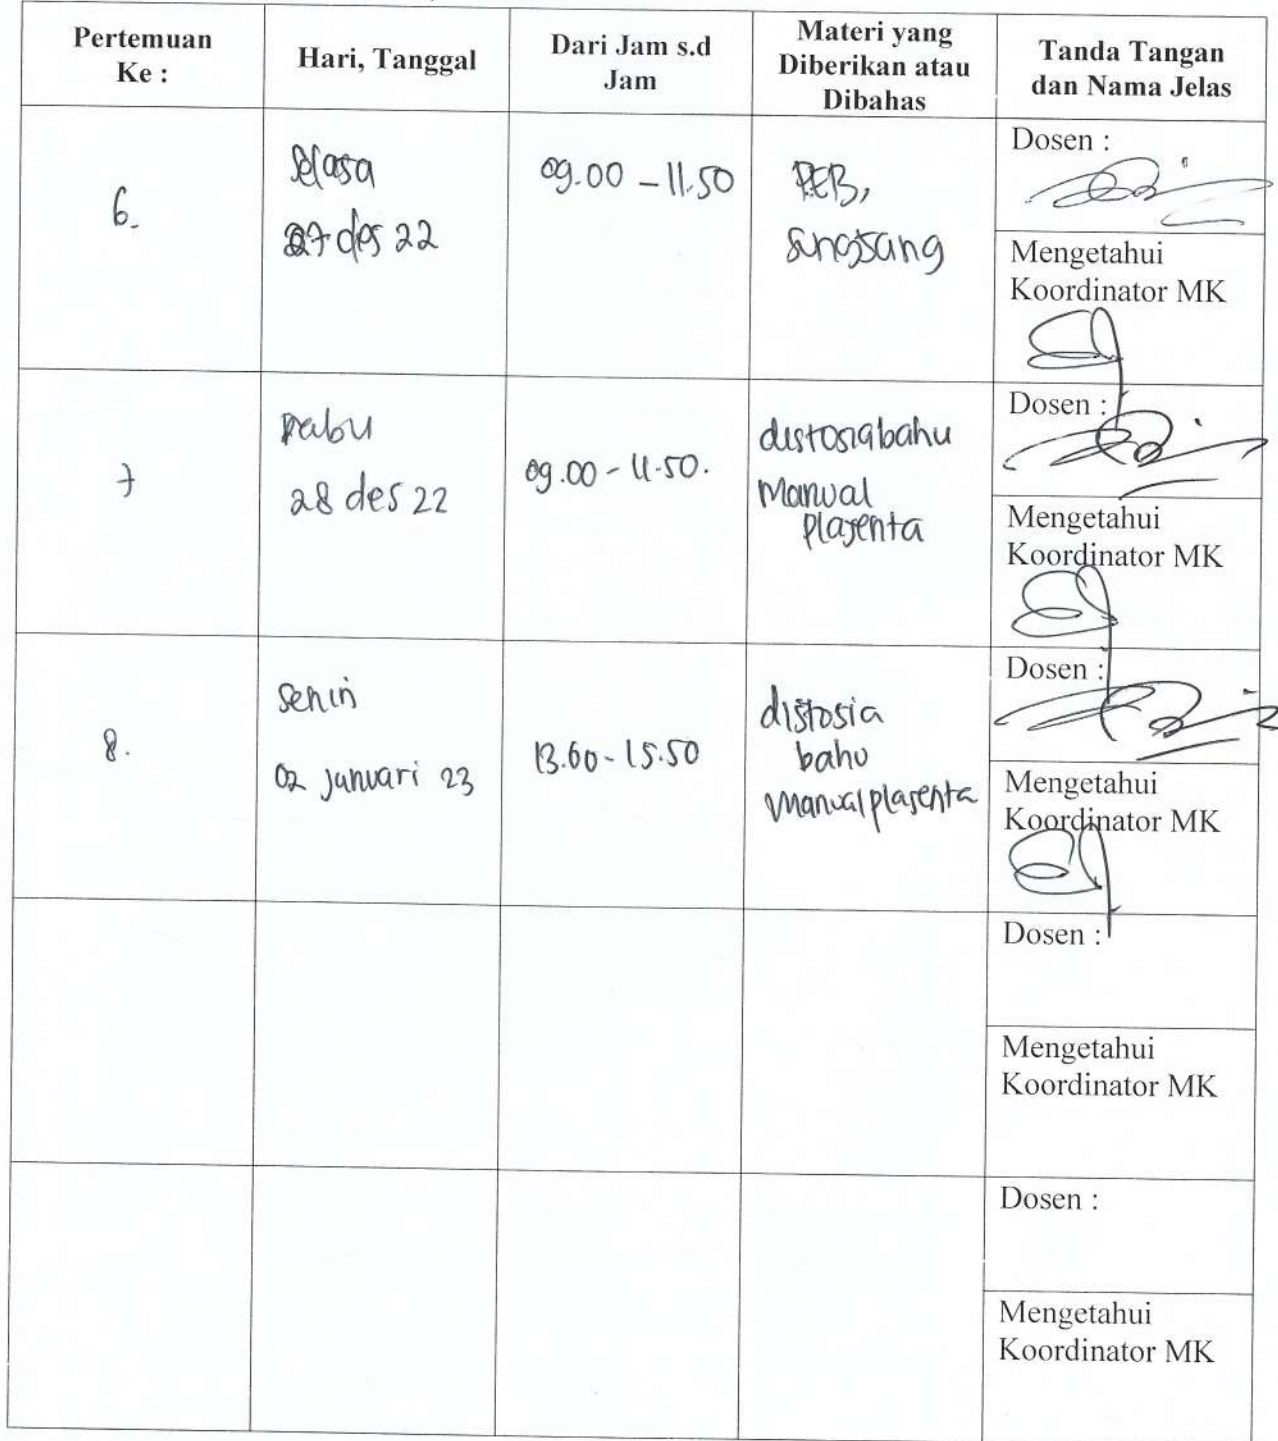 Pertemuan
Ke :
Hari, Tanggal
Dari Jam s.d
Jam
Materi yang
Diberikan atau
Dibahas
Tanda Tangan
dan Nama Jelas
6.
Selasa
27 des 22
09.00 - 11.50
PEB,
sungsang
Dosen :
Mengetahui
Koordinator MK
7
rabu
28 des 22
09.00 - 11.50.
distosia bahu
Manual
plasenta
Dosen :
Mengetahui
Koordinator MK
8.
Senin
02 januari 23
13.00 - 15.50
distosia
bahu
manual plasenta
Dosen :
Mengetahui
Koordinator MK
Dosen :
Mengetahui
Koordinator MK
Dosen :
Mengetahui
Koordinator MK